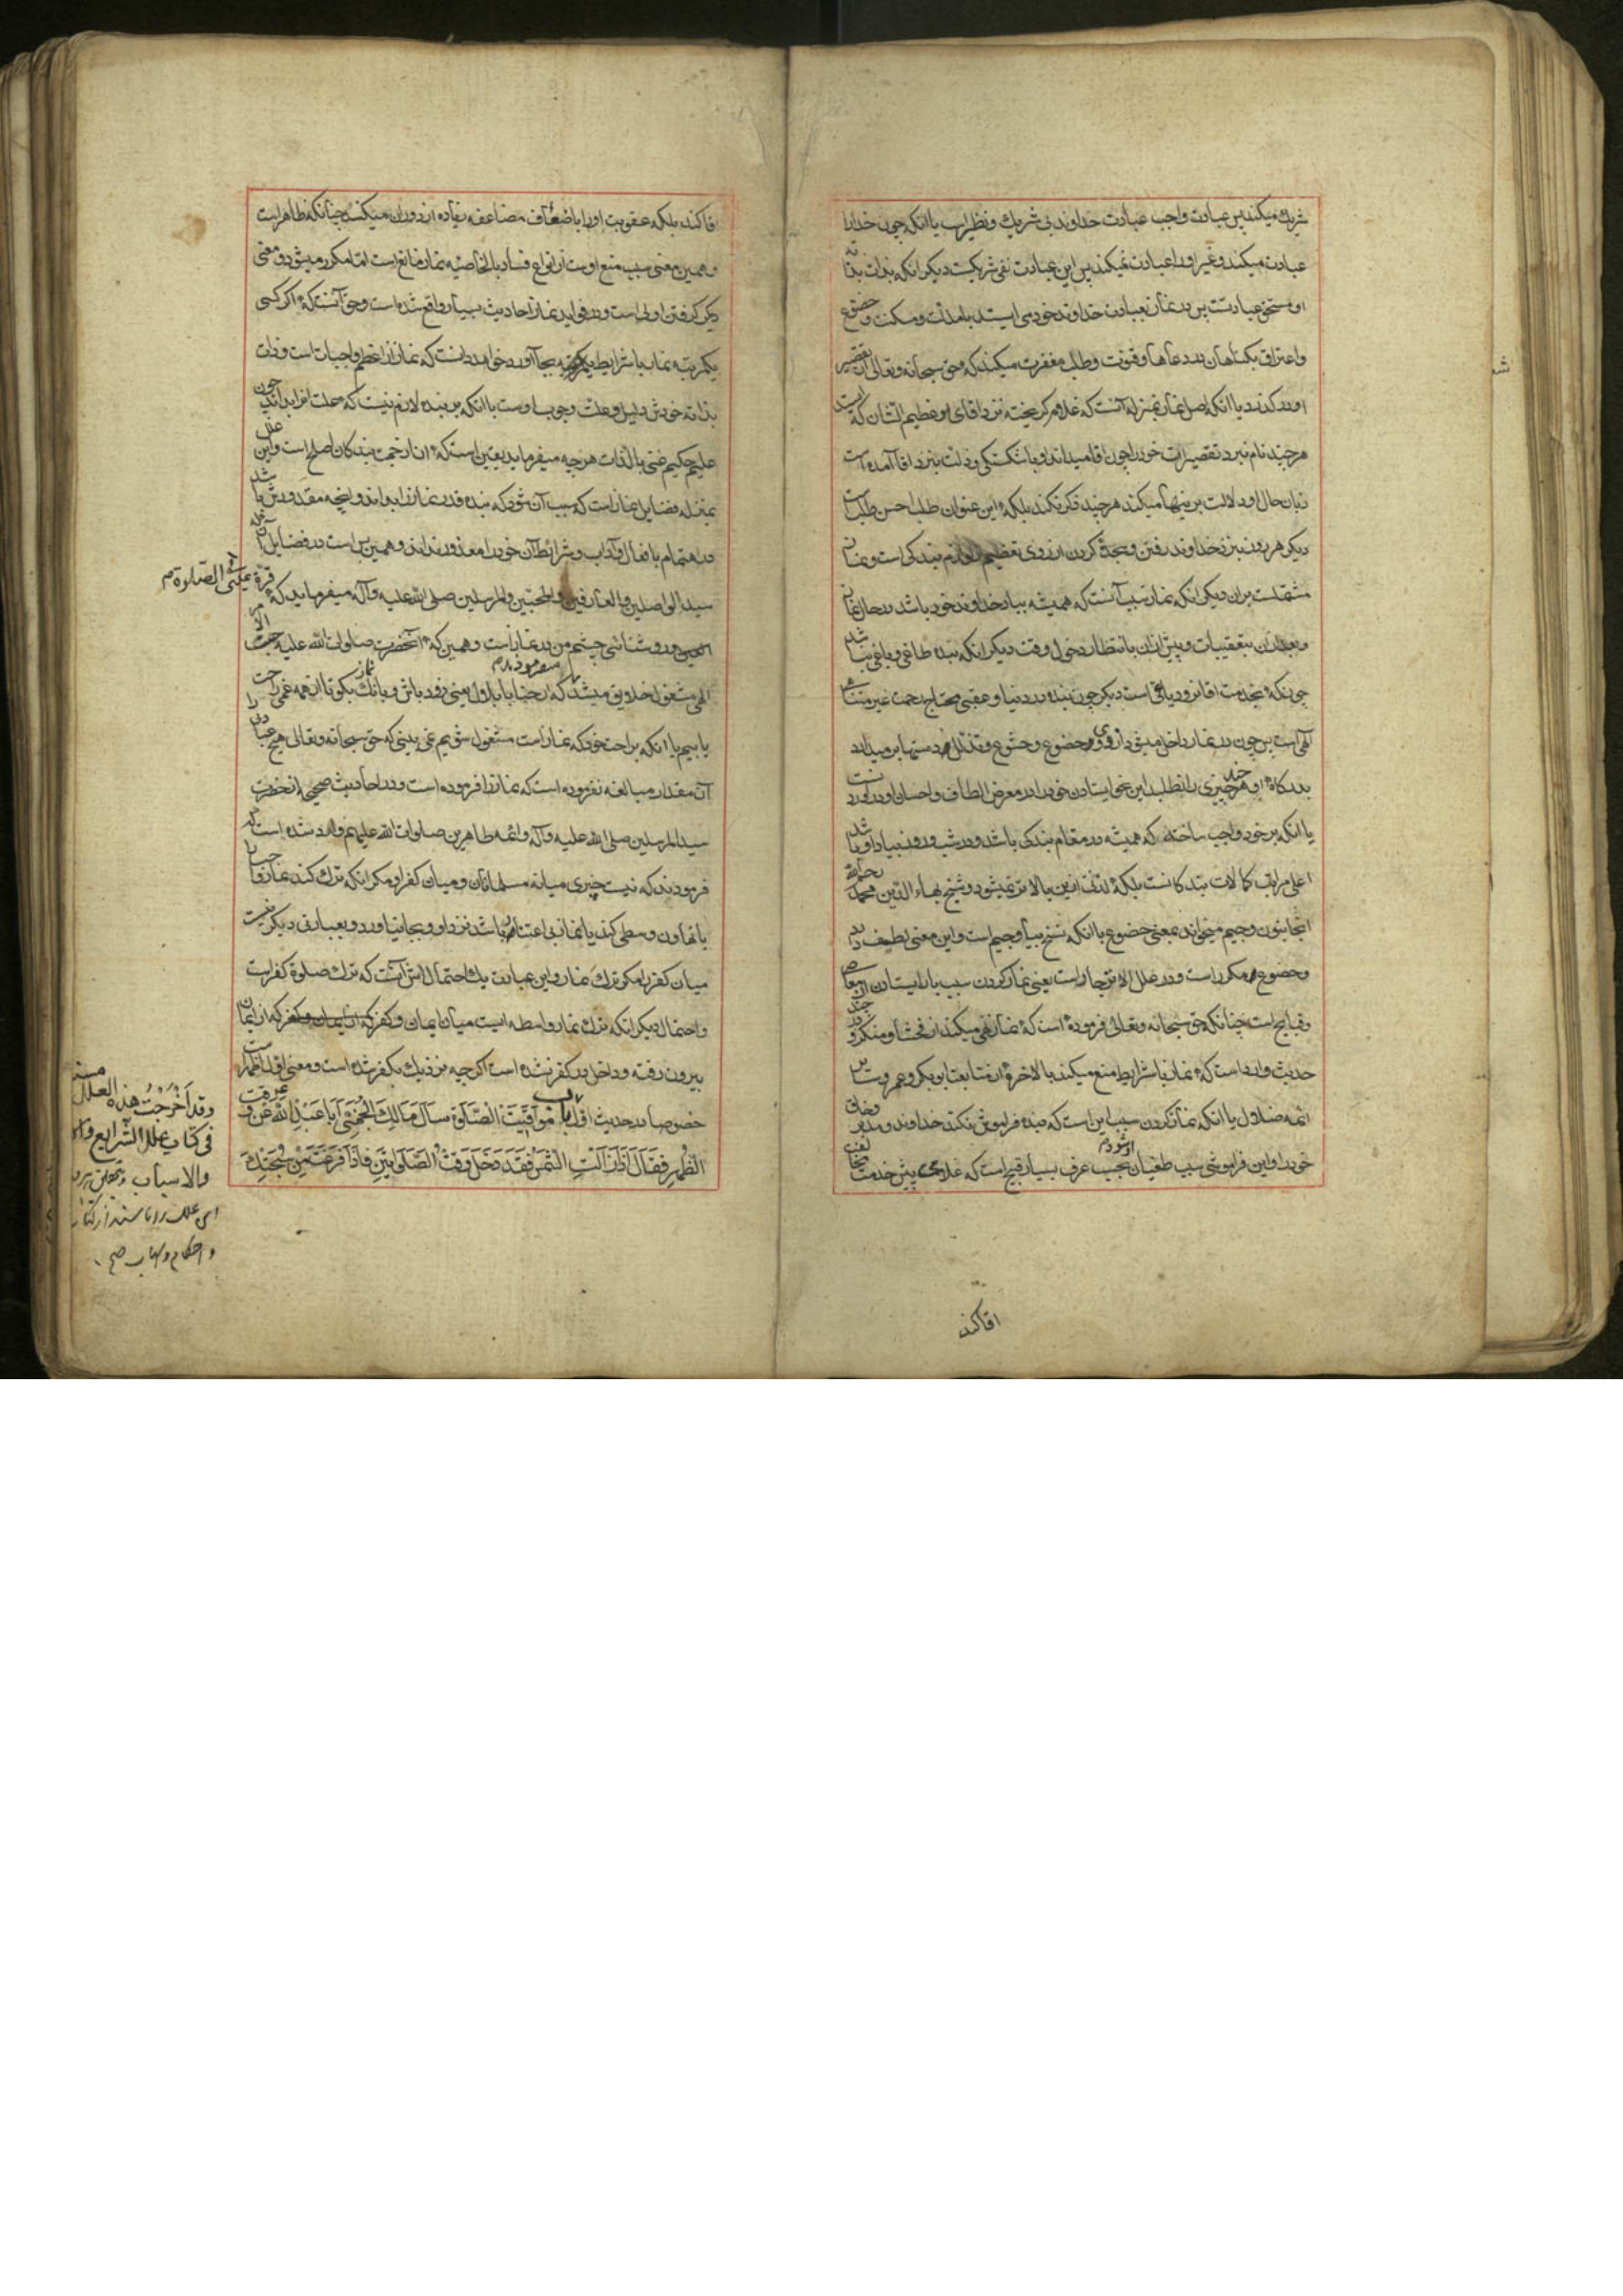 شریك میکند پس عبادت واجب عبادت خداوند بی شریك و نظیر است یا آنکه چون خدا را
عبادت میکند و غیر او را عبادت نمیکند پس این عبادت نفی شریکست دیکر انکه بذات بذاته
او مستحق عبادتست پس در نماز بعبادت خداوند خود می ایستد با مذلت و مسکنت و خضوع
و اعتراف بکناهان در دعاها و قنوت و طلب مغفرت میکند که حق سبحانه و تعالی از تقصیر
او در کذرد یا انکه اصل نماز بمنزله آنست که غلام کریخته نزد اقای عظیم الشان که
هر چند نام نبرد تقصیرات خود را چون اقا میداند و با شکستکی و ذلت بنزد اقا آمده است
زبان حال او دلالت بر اینها میکند هر چند فکر نکند بلکه این عنوان طلب احسن طلب است
دیکر هر روز بنزد خداوند رفتن و سجده کردن از روی تعظیم لوازم بندکی است و نماز
مشتملست بران دیکر انکه نماز سبب آنست که همیشه بیاد خداوند خود باشد در حال نماز
و بعد از ان بتعقیبات و پیش از ان بانتظار دخول وقت دیکر انکه بنده طاغی و یاغی نباشد
چرا که بخدمت اقا نرود یاغی است دیکر چون بنده در دنیا و عقبی محتاج رحمت غیر متناهی
الهی است پس چون در نماز داخل میشود از روی خضوع و خشوع و تذلل دستها برمیدارد
بدرکاه او هر چند چیزی را نطلبد این نحو ایستادن خود را در معرض الطاف و احسان او در آورد
یا انکه بر خود واجب ساخته که همیشه در مقام بندکی باشد و در شب و روز بیاد او باشد
اعلی مراتب کمالات بندکانست بلکه لذتی ازین بالاتر نمیشود و شیخ بهاء الدین محمد رحمه الله
اینجا بنون و جیم میخواند بمعنی خضوع با انکه نسخ بیا و جیم است و این معنی لطیف دارد
و خضوع مکرر است و در علل الانزجار است یعنی نماز کردن سبب باز ایستادن از معاصی
و قبایح است چنانکه حق سبحانه و تعالی فرموده است که نماز نهی میکند از فحشا و منکر و در چند
حدیث وارد است که نماز با شرایط منع میکند بالاخره از متابعت ابو بکر و عمر و سایر
ائمه ضلال یا انکه نماز کردن سبب این است که بنده فراموش نکند خداوند و مدبر و خالق
خود را و این فراموشی سبب طغیان او شود و بحسب عرف بسیار قبیح است که غلامی پیش خدمت
اقا کند
اقا کند بلکه عقوبت او را باضعاف مضاعفه زیاده از دوران میکنند چنانکه ظاهر است
و همین معنی سبب منع اوست از انواع فساد بالخاصیه نماز مانع است اما مکرر میشود و معنی
دیکر کرفتن اولی است و در فواید نماز احادیث بسیار واقع شده است و حق آنست که اکر کسی
یکمرتبه نماز با شرایط بجا آورد خواهد دانست که نماز از اعظم واجبات است و ذات
بذاته خودش دلیل و علت وجوب اوست با انکه بر بنده لازم نیست که علت انرا بداند چون
علیم حکیم غنی بالذات هر چه میفرماید یقین است که از رحمت بندکان اصلح است و این علل
بمنزله فضایل نماز است که سبب آن شود که بنده قدر نماز را بداند و آنچه مقدورش باشد
در اهتمام بافعال و آداب و شرائط آن خود را معذور نداند و همین بس است در فضایل آن که
سید الواصلین و العارفین و المحبین و المرسلین صلی الله علیه و آله میفرماید که
قرة عینی فی الصلوة
روشنائی چشم من در نماز است و همین که آنحضرت صلوات الله علیه
مشغول خلایق میشد که ارحنا یا بلال یعنی زود باش و بانك نماز بکو تا از همه غمی راحت
یابیم یا انکه براحت خود که نماز است مشغول شویم نمی بینی که حق سبحانه و تعالی هیچ عبادتی را
آن مقدار مبالغه نفرموده است که نماز را فرموده است و در احادیث صحیحه از حضرت
سید المرسلین صلی الله علیه و آله و ائمه طاهرین صلوات الله علیهم وارد شده است که
فرمودند که نیست چیزی میانه مسلمانان و میان کفر او مکر انکه ترك کند نماز واجب را
یا تهاون و سطی کند یا نماز بی اعتبار باشد نزد او و بجا نیاورد و بعبارتی دیکر نیست
میان کفر مکر ترك نماز و این عبارت یك احتمال اش آنست که ترك صلوة کفر است
و احتمال دیکر انکه ترك نماز واسطه ایست میان ایمان و کفر که از ایمان
بیرون رفته و داخل در کفر نشده است اکر چه نزدیك بکفر شده است و معنی اول اظهر است
خصوصا در حدیث اول باب مواقیت الصلوة سأل مالك الجهنی ابا عبد الله عن وقت
الظهر فقال اذا زالت الشمس فقد دخل وقت الصلاتین فاذا فرغت من سبحتك
وقد اخرجت هذه العلل مسندة
فی کتاب علل الشرایع و الاحکام
والاسباب